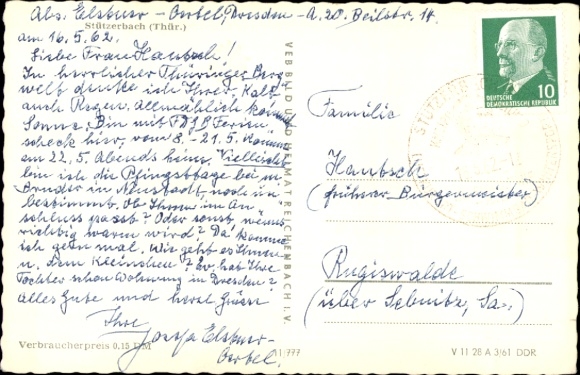 Abs. Elstner - Oertel, Dresden - A. 20. Beilstr. 14
Stützerbach (Thür.)
am 16.5.62.
Liebe Frau Hautsch!
In herrlicher Thüringer Berg
welt denke ich Ihrer. Kalt
auch Regen, allmählich kommt
Sonne. Bin mit FDGB Ferien
scheck hier, vom 8. - 21.5. komme
am 22.5. Abends heim. Vielleicht
bin ich die Pfingsttage beim
Bruder in Neustadt, noch un
bestimmt. Ob Ihnen im An
schluss passt? Oder sonst, wenns
richtig warm wird? Da komme
ich gern mal. Wie geht es Ihnen
u. dem Kleinchen? Hat Ihre
Tochter schon Wohnung in Dresden?
Alles Gute und herzl. Grüße
Ihre
Elstner-
Oertel.
Verbraucherpreis 0,15 DM
VEB BILD UND HEIMAT REICHENBACH I. V.
10
DEUTSCHE
DEMOKRATISCHE REPUBLIK
Familie
Hautsch
(früherer Bürgermeister)
Rugiswalde
(über Sebnitz, Sa.)
V 11 28 A 3/61 DDR